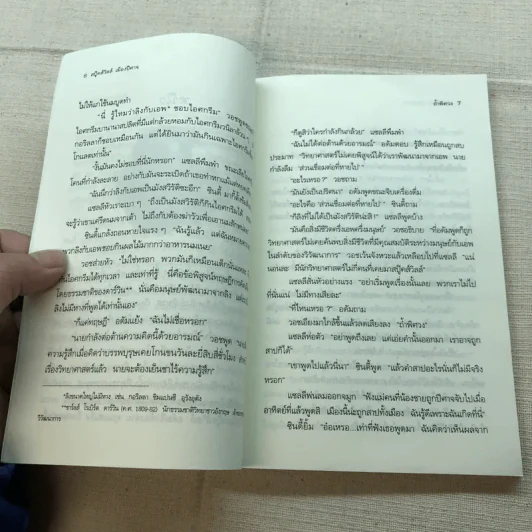 6 สปุ๊คส์วิลล์ เมืองปีศาจ
ไม่ให้แกใช้นมบูดทำ
"นี่ รู้ไหมว่าลิงกับเอพ* ชอบไอศกรีม" วอชพูดขึ้น
ไอศกรีมบานานาสปลิตที่มีแต่กล้วยหอมกับไอศกรีมวนิลาล้วน ๆ
กอริลลาก็ชอบเหมือนกัน แต่ได้ยินมาว่ามันกินเฉพาะไอศกรีมช็อก
โกแลตเท่านั้น"
"งั้นมันคงไม่ชอบที่นี่นักหรอก" แซลลีพึมพำ
"ฉันนึกว่าลิงกับเอพเป็นมังสวิรัติซะอีก" ซินดี้
แซลลีหัวเราะเบา ๆ "ถึงเป็นมังสวิรัติก็กินไอศกรีมได้
ซินดี้แกล้งถอนหายใจแรง ๆ "ฉันรู้แล้ว
พวกลิงกับเอพชอบกินผลไม้มากกว่าอาหารนมเนย"
วอชส่ายหัว "ไม่ใช่หรอก พวกมันก็เหมือนเด็กนั่นแหละ
กินไอศกรีมได้ทุกเวลา และเท่าที่รู้ นี่คือข้อพิสูจน์ทฤษฎีการคัดเลือก
โดยธรรมชาติของดาร์วิน** มันคือมนุษย์พัฒนามาจากลิง แต่
ลิงไม่มีทางที่พูดได้เท่านั้นเอง"
"ก็แค่ทฤษฎี" อดัมแย้ง "ฉันไม่เชื่อหรอก"
"นายกำลังต่อต้านความคิดนี้ด้วยอารมณ์" วอชพูด
ความรู้สึกเมื่อคิดว่าบรรพบุรุษเคยโกนขนวันละยี่สิบสี่ชั่วโมง
เรื่องวิทยาศาสตร์แล้ว นายจะต้องเย็นชาไร้ความรู้สึก"
*ลิงขนาดใหญ่ไม่มีหาง เช่น กอริลลา ชิมแปนซี อุรังอุตัง
**ชาร์ลส์ โรเบิร์ต ดาร์วิน (ค.ศ. 1809-82) นักธรรมชาติวิทยาชาวอังกฤษ
วิวัฒนาการ
ถ้ำพิศวง 7
"ก็ดูสิว่าใครกำลังกินกล้วย" แซลลีพึมพำ
"ฉันไม่ได้ต่อต้านด้วยอารมณ์" อดัมตอบ รู้สึกเหมือนถูกสบ
ประมาท "วิทยาศาสตร์ไม่เคยพิสูจน์ได้ว่าเราพัฒนามาจากเอพ นาย
กำลังลืม 'ส่วนเชื่อมต่อที่หายไป'"
"อะไรเหรอ" วอชถาม
"มันยังเป็นปริศนา" อดัมพูดขณะจิบเครื่องดื่ม
"อะไรคือ 'ส่วนเชื่อมต่อที่หายไป'" ซินดี้ถาม
"ก็ลิงที่ไม่ได้เป็นมังสวิรัติน่ะสิ" แซลลีพูดบ้าง
"มันคือลิงมีชีวิตครึ่งเอพครึ่งมนุษย์" วอชอธิบาย "คืออดัมก็ถูก
วิทยาศาสตร์ไม่เคยค้นพบสิ่งมีชีวิตที่มีคุณสมบัติระหว่างมนุษย์กับเอพ
ในลำดับของวิวัฒนาการ" วอชเว้นจังหวะแล้วเหลือบไปที่แซลลี "แน่
นอนละ มีนักวิทยาศาสตร์ไม่กี่คนที่เคยมาสปุ๊คส์วิลล์"
แซลลีสั่นหัวอย่างแรง "อย่าเริ่มพูดเรื่องนั้นเลย พวกเราไม่ไป
ที่นั่นแน่ ไม่มีทางเสียละ"
"ที่ไหนเหรอ" อดัมถาม
วอชเอียงมาใกล้ขึ้นแล้วลดเสียงลง "ถ้ำพิศวง"
แซลลีห่อตัว "อย่าพูดถึงเลย แค่เอ่ยคำนั้นออกมา เราอาจถูก
สาปก็ได้"
"เขาพูดไปแล้วนี่นา" ซินดี้พูด "แล้วคำสาปอะไรนั่นก็ไม่มีจริง
หรอก"
แซลลีพ่นลมออกจมูก "ฟังแม่คนที่น้องชายถูกปีศาจจับไปเมื่อ
อาทิตย์ที่แล้วพูดสิ เมืองนี้น่ะถูกสาปทั้งเมือง ฉันรู้ดีเพราะฉันเกิดที่นี่"
ซินดี้ยิ้ม "อ๋อเหรอ...เท่าที่ฟังเธอพูดมา ฉันคิดว่าเห็นผลจาก